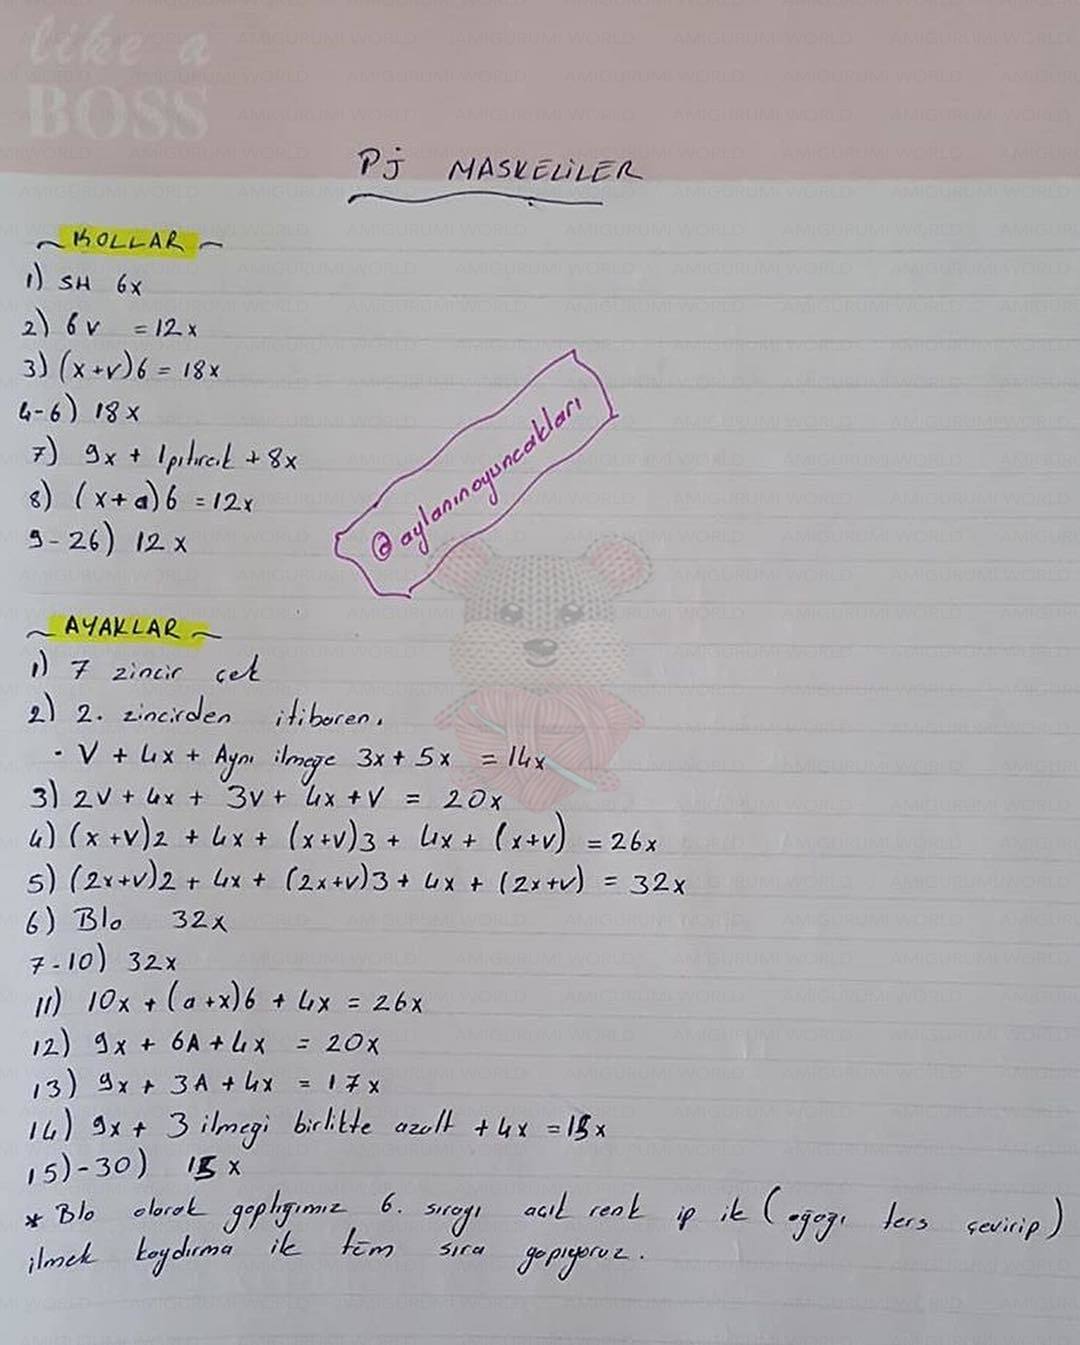 like a
BOSS
PJ MASKELİLER
~ KOLLAR ~
1) SH 6x
2) 6v = 12x
3) (x+v)6 = 18x
4-6) 18x
7) 9x + 1pıtırcık + 8x
8) (x+a)6 = 12x
9-26) 12x
@aylanınoyuncakları
~ AYAKLAR ~
1) 7 zincir çek
2) 2. zincirden itibaren.
- V + 4x + Aynı ilmeğe 3x + 5x = 14x
3) 2V + 4x + 3V + 4x + V = 20x
4) (x+V)2 + 4x + (x+v)3 + 4x + (x+v) = 26x
5) (2x+v)2 + 4x + (2x+v)3 + 4x + (2x+v) = 32x
6) Blo 32x
7-10) 32x
11) 10x + (a+x)6 + 4x = 26x
12) 9x + 6A + 4x = 20x
13) 9x + 3A + 4x = 17x
14) 9x + 3 ilmegi birlikte azalt + 4x = 15x
15)-30) 15x
* Blo olarak yaptığımız 6. sırayı açık renk ip ile (ayağı ters çevirip)
ilmek kaydırma ile tüm sıra yapıyoruz.
AMIGURUMI WORLD